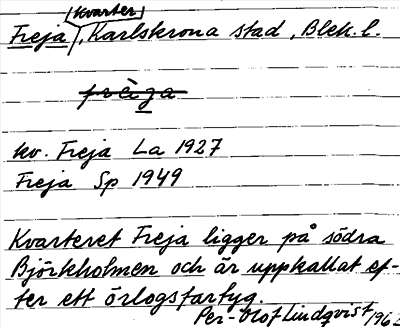 Freja (kvarter), Karlskrona stad, Blek. l.
frè̀ja
kv. Freja La 1927
Freja Sp 1949
Kvarteret Freja ligger på södra
Björkholmen och är uppkallat ef-
ter ett örlogsfartyg.
Per-Olof Lindqvist, 196